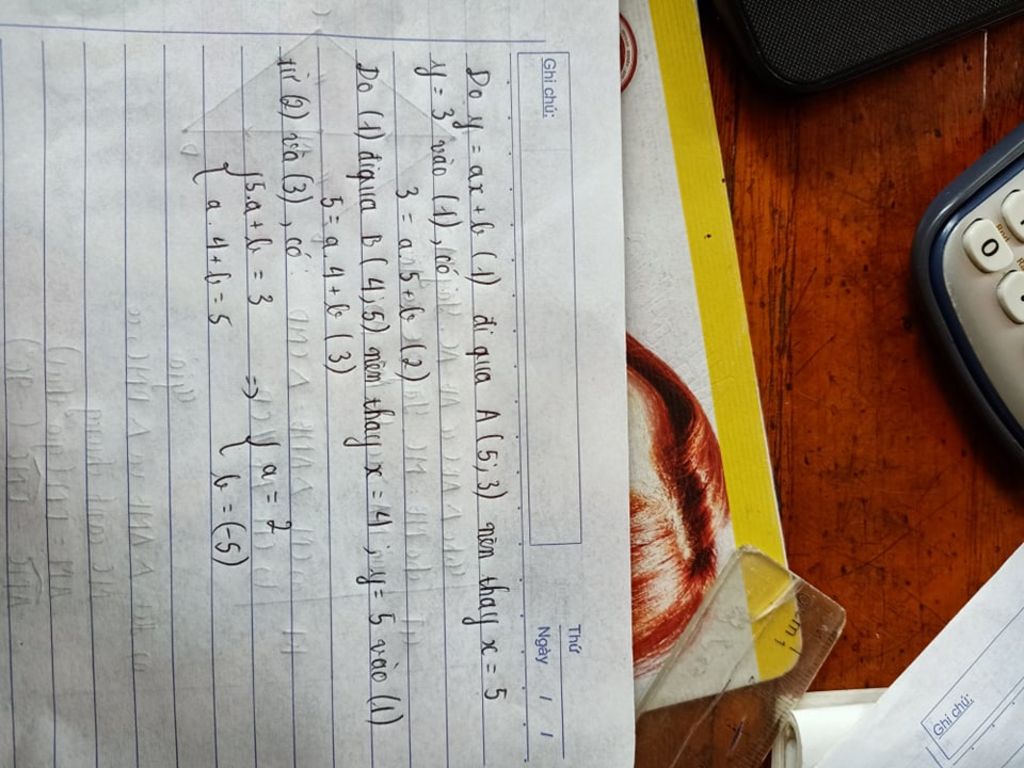 Ghi chú:
Thứ
Ngày / /
Do y = ax + b (1) đi qua A (5; 3) nên thay x = 5
y = 3 vào (1), có
3 = a. 5 + b (2)
Do (1) đi qua B (4; 5) nên thay x = 4; y = 5 vào (1)
5 = a. 4 + b (3)
từ (2) và (3), có:
{ 5.a + b = 3 => { a = 2
{ a. 4 + b = 5 { b = (-5)
0
Rnd
cm 1
Ghi chú: